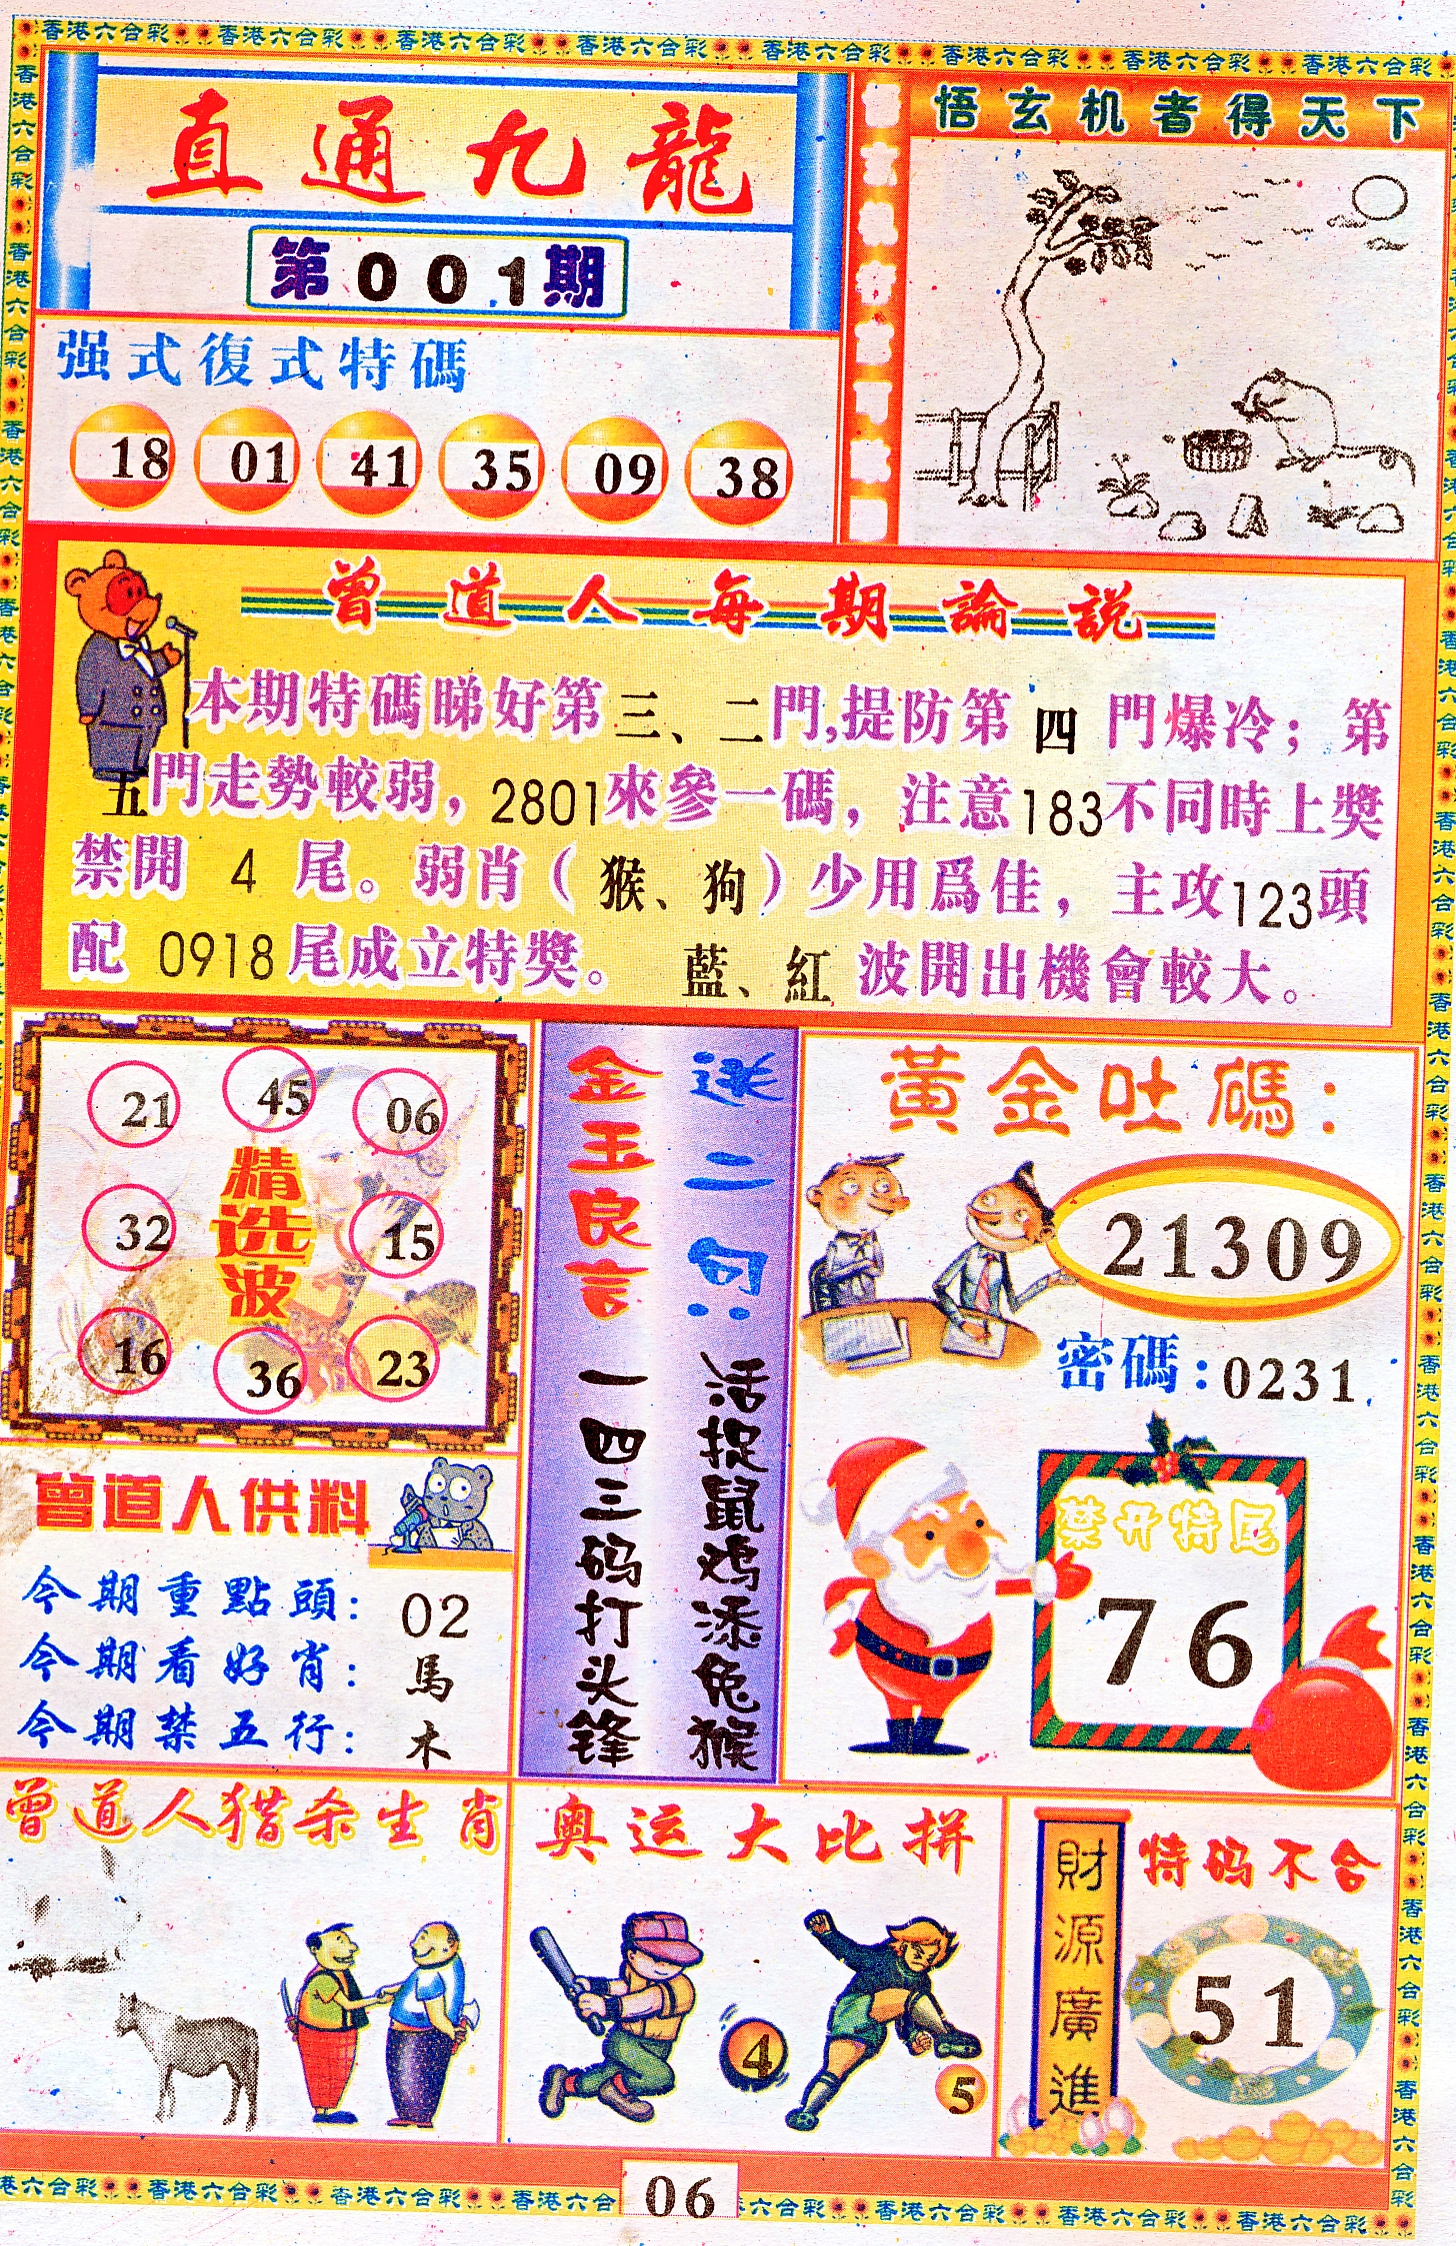 香港六合彩 香港六合彩 香港六合彩 香港六合彩 香港六合彩 香港六合彩 香港六合彩 香港六合彩
直通九龍
第001期
悟玄机者得天下
强式復式特碼
18 01 41 35 09 38
曾道人每期論説
本期特碼睇好第三、二門,提防第四門爆冷；第
五門走勢較弱，2801來參一碼，注意183不同時上獎
禁開 4 尾。弱肖（猴、狗）少用爲佳，主攻123頭
配 0918尾成立特獎。 藍、紅 波開出機會較大。
21 45 06
精选波
32 15
16 36 23
送二句：
活捉鼠鸡添兔猴
金玉良言
一四三码打头锋
黃金吐碼：
21309
密碼：0231
禁开特尾
76
曾道人供料
今期重點頭：02
今期看好肖：馬
今期禁五行：木
曾道人猎杀生肖
奥运大比拼
4
5
財源廣進
特码不合
51
06
香港六合彩 香港六合彩 香港六合彩 香港六合 六合彩 香港六合彩 香港六合彩 香港六合彩